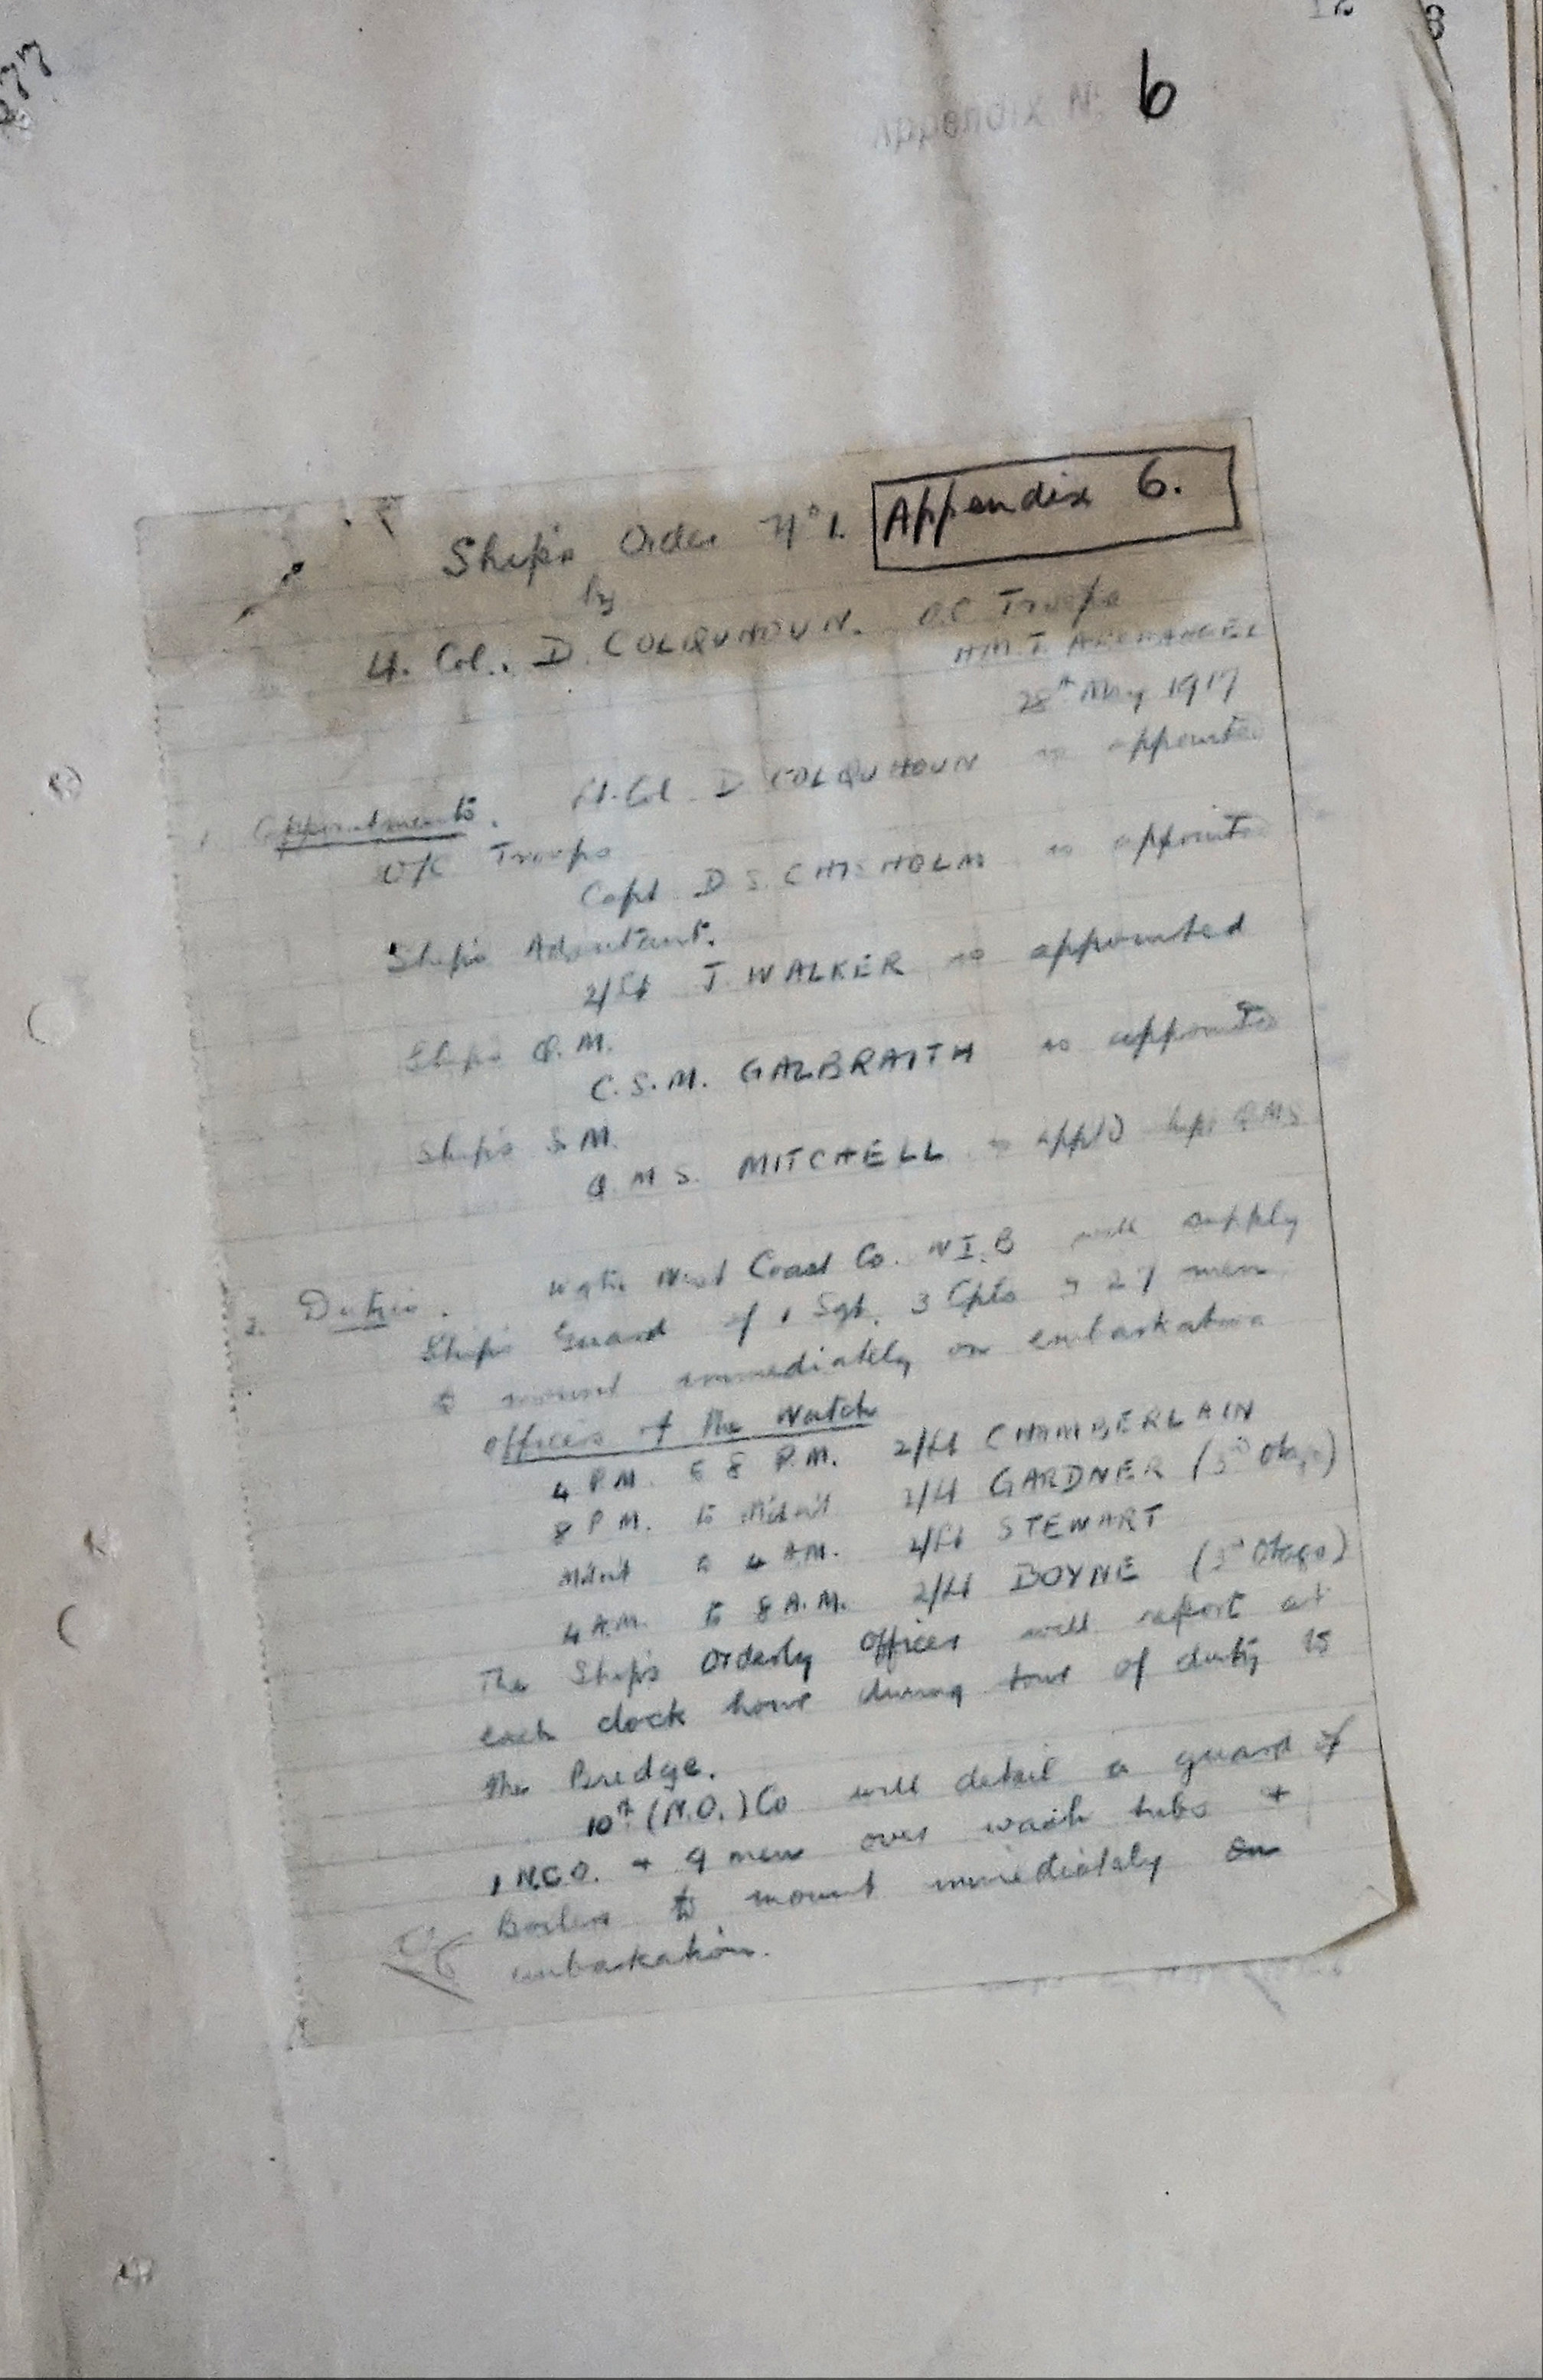 6
Ship's Order No 1. Appendix 6.
by
Lt. Col. D. COLQUHOUN. O.C Troops
H.M.T. ARCHANGEL
28th May 1917
1. Appointments. Lt. Col D COLQUHOUN is appointed
O/C Troops
Capt D S. CHISHOLM is appointed
Ship's Adjutant.
2/Lt J. WALKER is appointed
Ship's Q.M.
C.S.M. GALBRAITH is appointed
Ship's S M.
Q. M S. MITCHELL is app'td Ships QMS
2. Duties. West Coast Co. will supply
Ship's Guard of 1 Sgt. 3 Cpls & 27 men
to mount immediately on embarkation
Officers of the Watch
4 P.M. to 8 P.M. 2/Lt CHAMBERLAIN
8 P M. to Midnit 2/Lt GARDNER (3rd Otago)
Midnit to 4 A.M. 2/Lt STEWART
4 A.M. to 8 A.M. 2/Lt BOYNE (3rd Otago)
The Ship's Orderly Officer will report at
each clock hour during tour of duty to
the Bridge.
10th (N.O.) Co will detail a guard of
1 N.C.O. + 9 men over wash tubs +
Boilers to mount immediately on
embarkation.